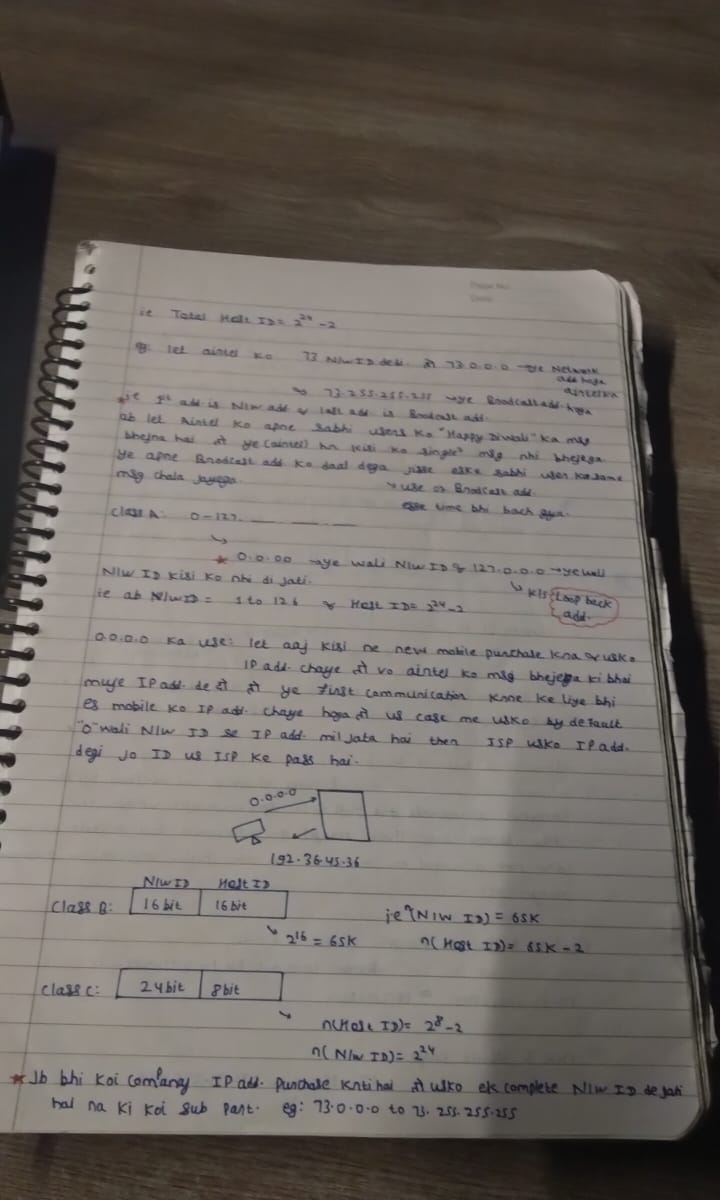 Page No.
Date
ie Total Host ID = 2^24 - 2
eg: let aintel ko 73 N/w ID dedi तो 73.0.0.0 → ye Network add hoga aintel ka
↳ 73.255.255.255 → ye Brodcast add. hoga
* ie 1st add is N/w add & last add is Brodcast add.
ab let Aintel ko apne sabhi users ko "Happy Diwali" ka msg
bhejna hai तो ye (aintel) hr kisi ko single² msg nhi bhejega
ye apne Brodcast add ko daal dega jisse eske sabhi user ko same
msg chala jayega.
↳ use of Brodcast add.
esse time bhi bach gya.
Class A: 0-127. ___ ___ ___
↳
* 0.0.0.0 → ye wali N/w ID & 127.0.0.0 → ye wali
N/w ID kisi ko nhi di jati.
↳ K/s Loop back add.
ie ab N/w ID = 1 to 126 & Host ID = 2^24 - 2
0.0.0.0 ka use: let aaj kisi ne new mobile purchase kra & usko
IP add. chaye तो vo aintel ko msg bhejega ki bhai
muje IP add. de दो तो ye first communication krne ke liye bhi
es mobile ko IP add. chaye hoga तो us case me usko by default
"0" wali N/w ID se IP add. mil jata hai then ISP usko IP add.
degi jo ID us ISP ke pass hai.
0.0.0.0
192.36.45.36
N/w ID Host ID
Class B: 16 bit 16 bit
ie n(N/w ID) = 65K
↳ 2^16 = 65K
n(Host ID) = 65K - 2
Class C: 24 bit 8 bit
↳ n(Host ID) = 2^8 - 2
n(N/w ID) = 2^24
* Jb bhi koi company IP add. purchase krti hai तो usko ek complete N/w ID de jati
hai na ki koi sub part. eg: 73.0.0.0 to 73.255.255.255